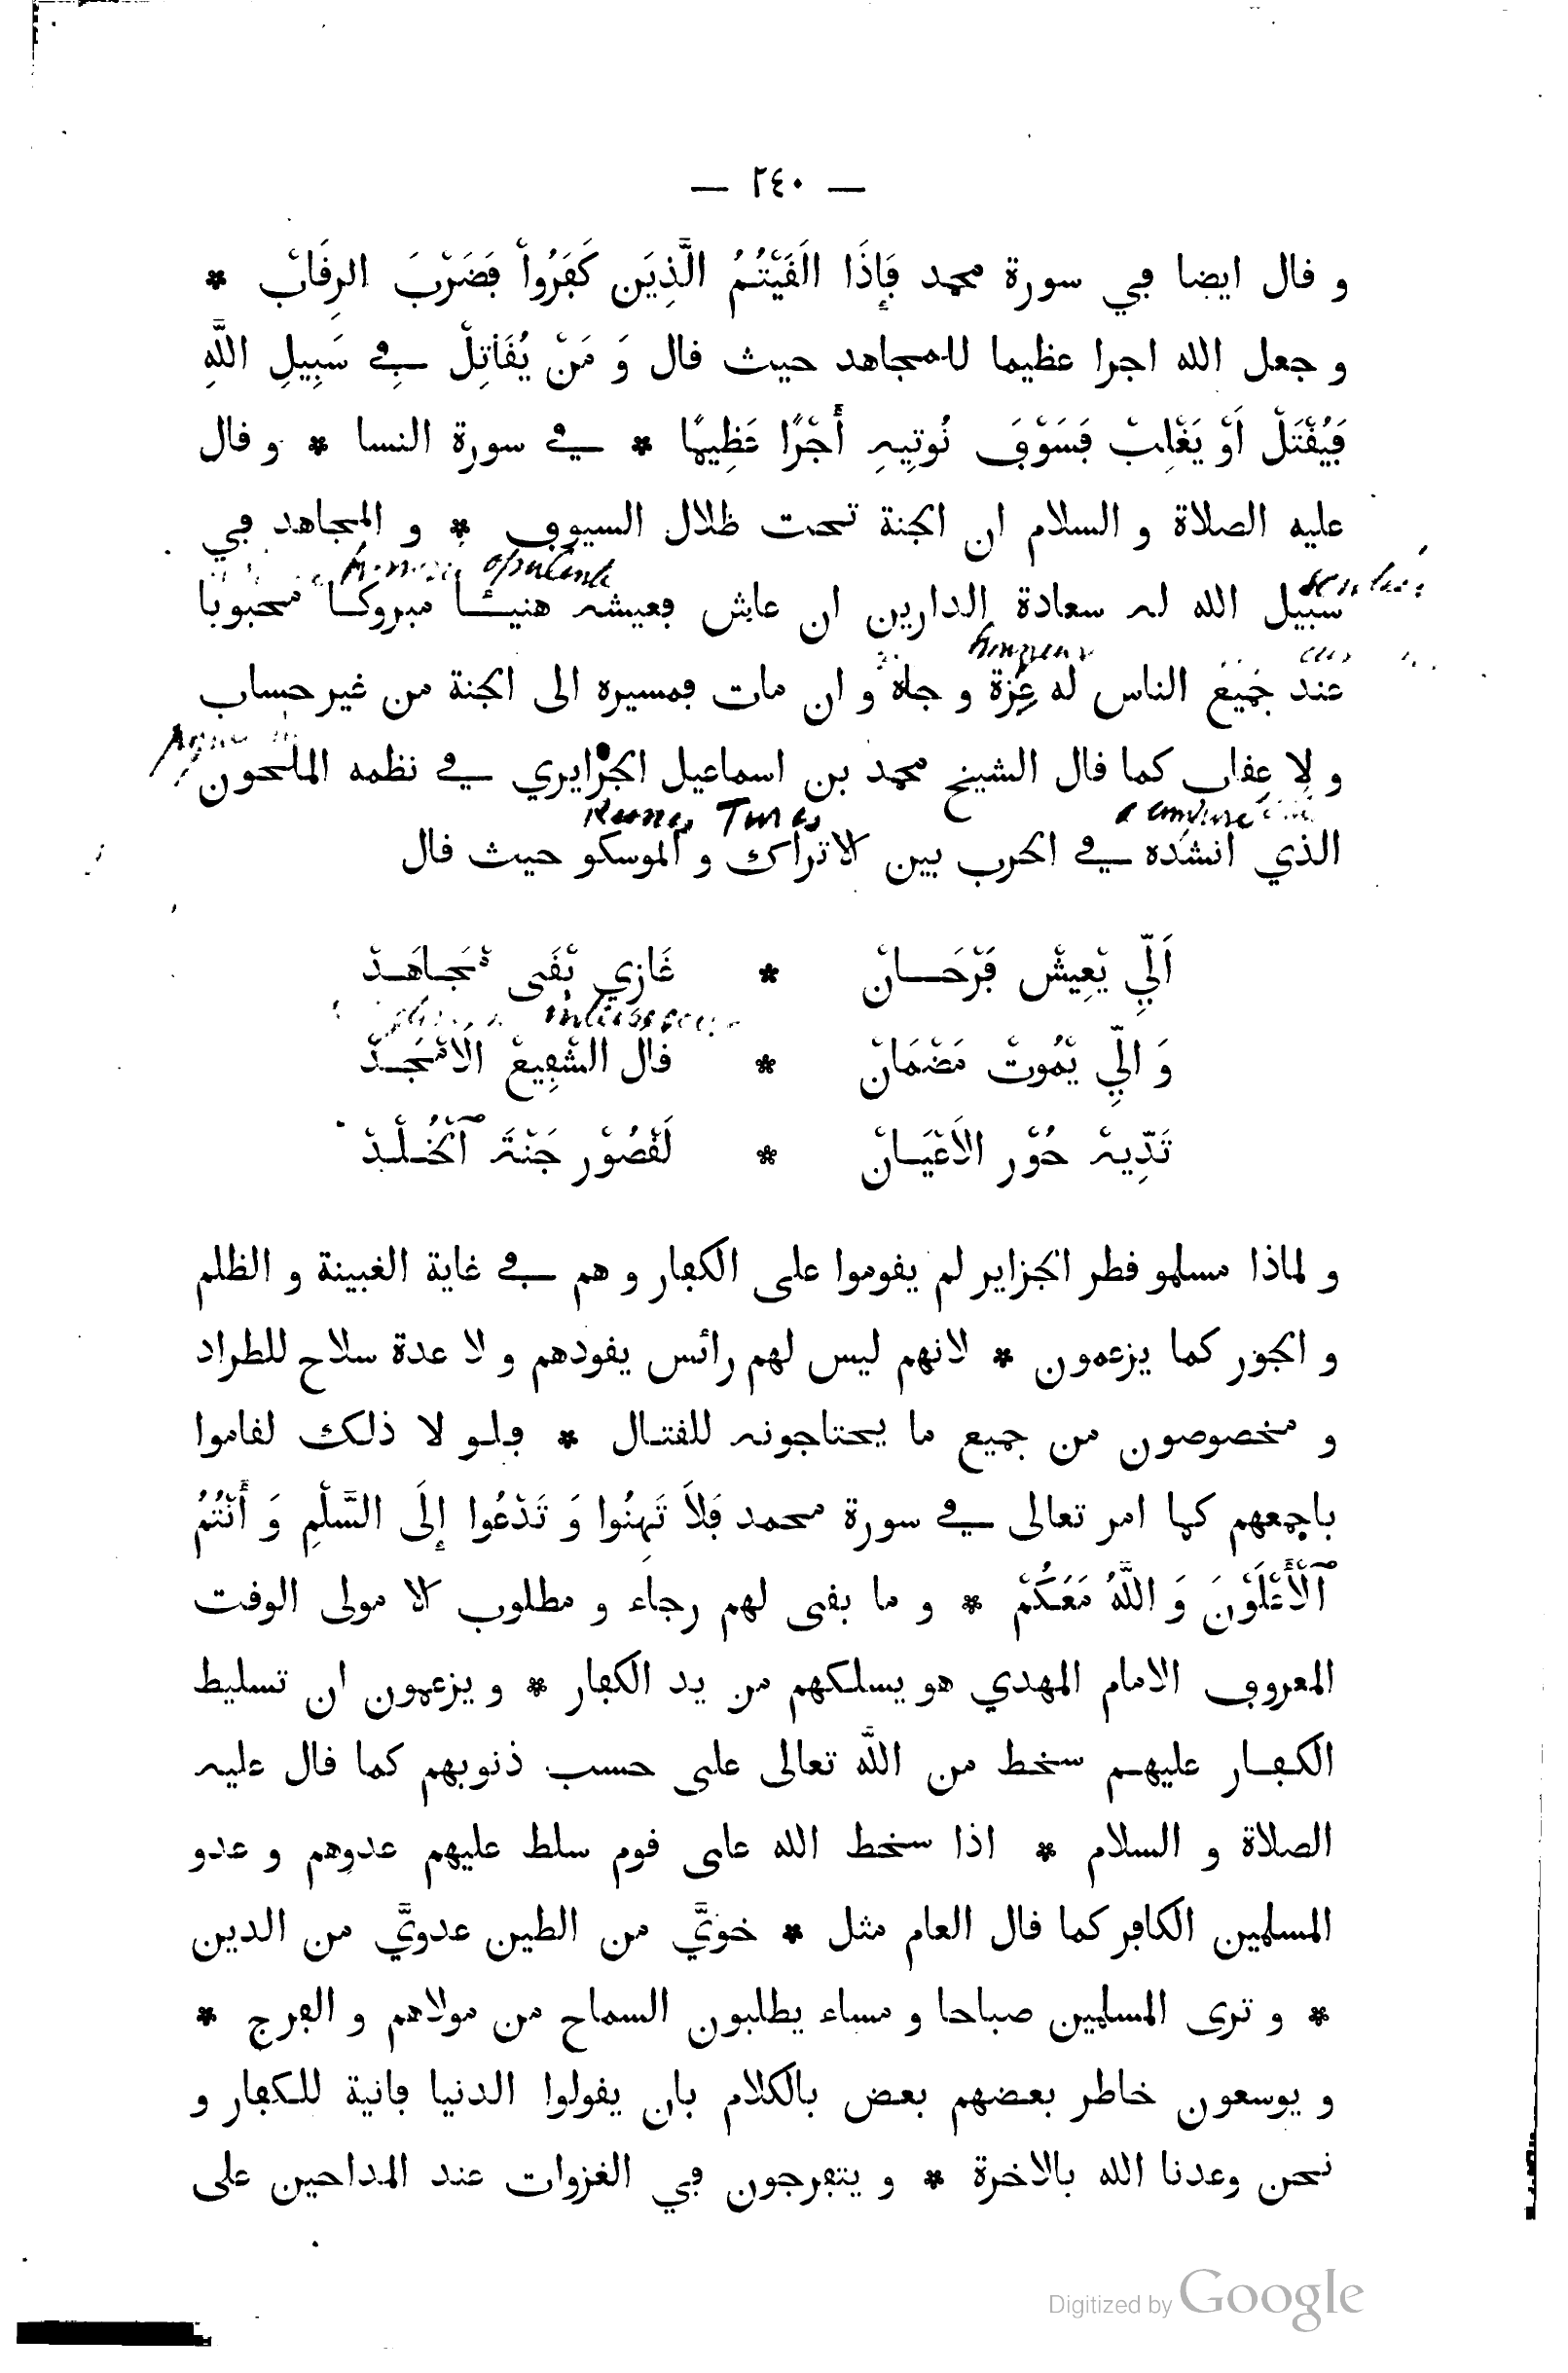 — ٢٤٠ —
و قال ايضا في سورة محمد فَإِذَا الَقَيْتُمُ الَّذِيَن كَفَرُواْ فَضَرْبَ الرِقَابْ *
و جعل الله اجرا عظيما للمجاهد حيث قال وَ مَنْ يُقَاتِلْ فِي سَبِيلِ اللَّهِ
فَيُقْتَلْ اَوْ يَغْلِبْ فَسَوْفَ نُوتِيهِ أَجْرًا عَظِيمًا * في سورة النسا * و قال
عليه الصلاة و السلام ان الجنة تحت ظلال السيوف * و المجاهد في
opulente
سبيل الله له سعادة الدارين ان عاش فعيشه هنيئا مبروكا محبوبا
عند جَمِيَع الناس له عِزة و جاه و ان مات فمسيره الى الجنة من غير حساب
و لا عِقاب كما قال الشيخ محمد بن اسماعيل الجزايري في نظمه الملحون
Russes Turcs
الذي انشده في الحرب بين الاتراك و الموسكو حيث قال
اَلِّي يْعِيشْ فَرْحَــانْ * غَازِي يْبْقَى مْجَـاهَـدْ
intercesseur
وَ الِّي يْمُوتْ مَضْمَانْ * قال الشْفِيعْ الَامْجَـدْ
تَدِّيهْ حُوْر الاَعْيَـانْ * لَقْصُوْر جَنْةَ ٱلْخُـلْـدْ
و لماذا مسلمو قطر الجزاير لم يقوموا على الكفار و هم في غاية الغبينة و الظلم
و الجور كما يزعمون * لانهم ليس لهم رائس يقودهم و لا عدة سلاح للطراد
و مخصوصون من جميع ما يحتاجونه للقتـال * فلـو لا ذلـك لقاموا
باجمعهم كما امر تعالى في سورة محمد فَلاَ تَهِنُوا وَ تَدْعُوا إِلَى السَّلْمِ وَ أَنْتُمُ
ٱلْأَعْلَوْنَ وَ اللَّهُ مَعَكُمْ * و ما بقى لهم رجاء و مطلوب الا مولى الوقت
المعروف الامام المهدي هو يسلكهم من يد الكفار * و يزعمون ان تسليط
الكفـار عليهـم سخط من اللَّه تعالى على حسب ذنوبهم كما قال عليه
الصلاة و السلام * اذا سخط الله على قوم سلط عليهم عدوهم و عدو
المسلمين الكافر كما قال العام مثل * خويَّ من الطين عدويَّ من الدين
* و ترى المسلمين صباحا و مساء يطلبون السماح من مولاهم و الفرج *
و يوسعون خاطر بعضهم بعض بالكلام بان يقولوا الدنيا فانية للكفار و
نحن وعدنا الله بالاخرة * و يتفرجون في الغزوات عند المداحين على
Digitized by Google